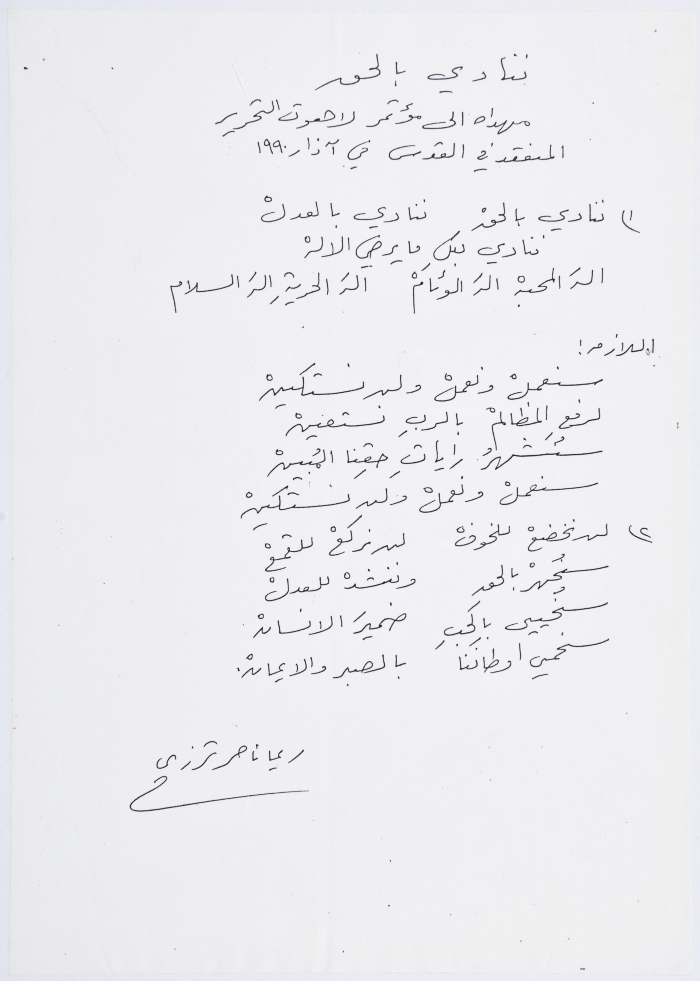 ننادي بالحق
مهداه الى مؤتمر لاهوت التحرير
المنعقد في القدس في آذار ١٩٩٠
١) ننادي بالحقْ ننادي بالعدلْ
ننادي بكلِ ما يرضي الالهْ
الىَ المحبهْ الىَ الوئامْ الىَ الحريةِ الىَ السلام
اللازمه:
سنعملْ ونعملْ ولن نستكينْ
لرفعِ المظالمْ بالربِ نستعينْ
سنُشهرُ راياتِ حقِنا المُبينْ
سنعملْ ونعملْ ولن نستكينْ
٢) لن نخضعْ للخوفْ لن نركعْ للقمعْ
سنُجهرْ بالحق وننشدْ للعدلْ
سنُحيي بالحُبِ ضميرَ الانسانْ
سنحمي اوطانَنا بالصبر والايمانْ.
ريما ناصر ترزي